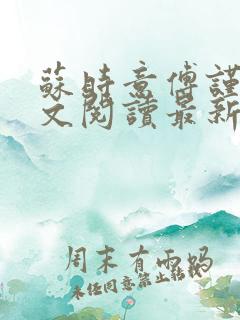 蘇時意傅謹
文閱讀最新
周末有雨吗
未经同意禁止转载